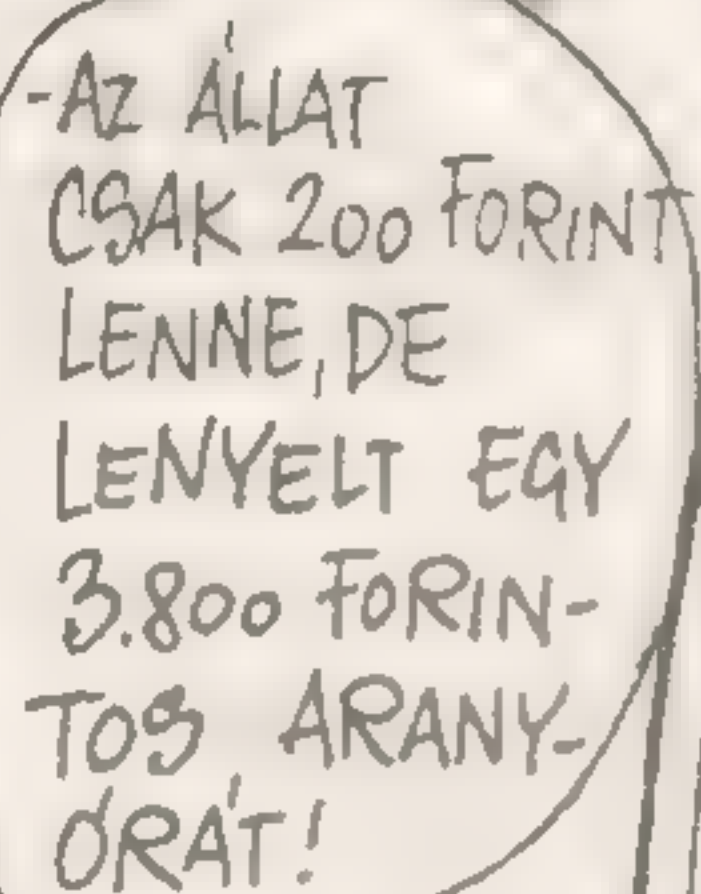 -AZ ÁLLAT
CSAK 200 FORINT
LENNE, DE
LENYELT EGY
3.800 FORIN-
TOS ARANY-
ÓRÁT!